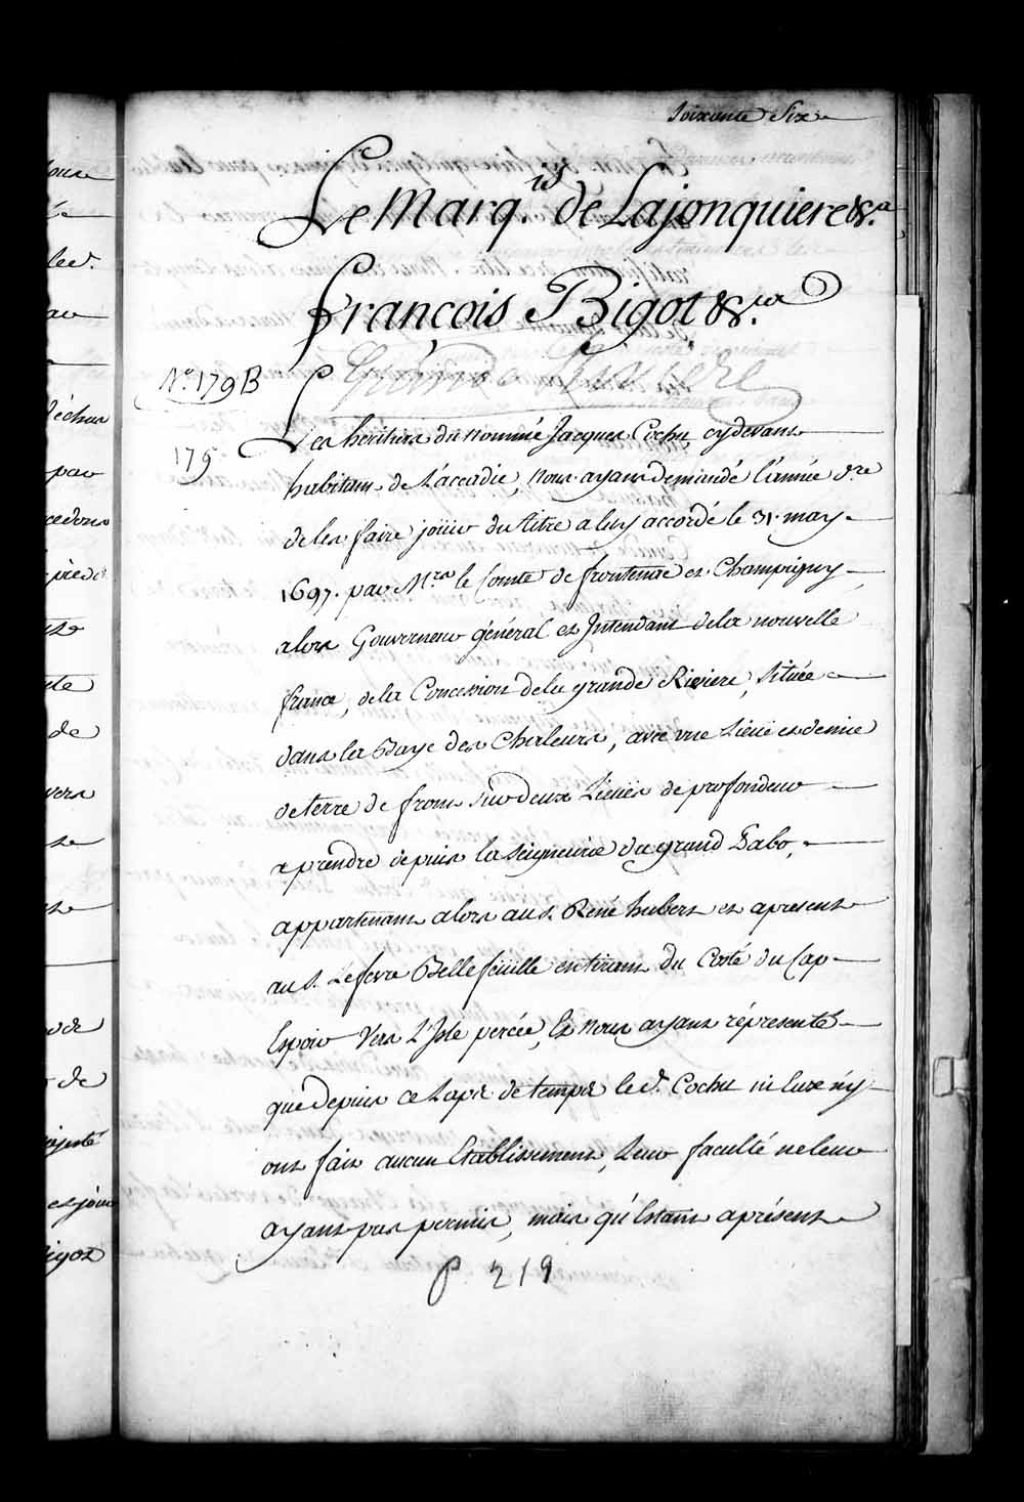 Soixante Six
Le Marq.is de Lajonquiere &.a
françois Bigot &.ca
Grande Riviere
No. 179 B
179
Les heritiers du nommé Jacques Cochu, cydevant
habitant de L'accadie, nous ayant demandé l'année d.re
de les faire joüir du titre a luy accordé le 31. may
1697. par Mrs. le Comte de frontenac et Champigny
alors Gouverneur général et Intendant dela nouvelle
france, dela Concession dela grande Riviere, Située
dans la Baye des Chaleurs, avec une Lieüe et demie
de terre de front sur deux Lieües de profondeur
a prendre depuis la Seigneurie du grand Pabo,
appartenant alors au S. René hubert et apresent
au S. Lefevre Bellefeüille en tirant du Costé du Cap
Espoir Vers L'Isle percée, Et nous ayant réprésenté
que depuis ce Laps de temps le d. Cochu ni Eux n'y
ont fait aucun Etablissement, Leur faculté ne leur
ayant pas permis, mais qu'Estant aprésent
P. 219
oune
led.
au
par
de
vers
se
de
de
et joüir
Bigot